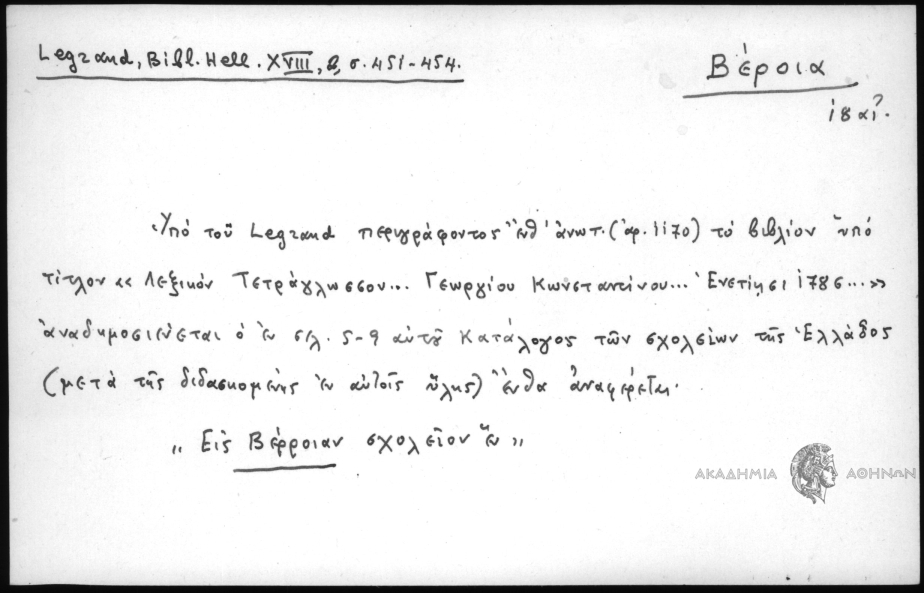 Legrand, Bibl. Hell. XVIII, β, σ. 451-454.
Βέροια
18 αἰ.
Ὑπό τοῦ Legrand περιγράφοντος ἔνθ' ἀνωτ. (ἀρ. 1170) τό βιβλίον ὑπό
τίτλον «Λεξικόν Τετράγλωσσον... Γεωργίου Κωνσταντίνου... Ἐνετίησι 1786...»
ἀναδημοσιεύεται ὁ ἐν σελ. 5-9 αὐτοῦ Κατάλογος τῶν σχολείων τῆς Ἑλλάδος
(μετά τῆς διδασκομένης ἐν αὐτοῖς ὕλης) ἔνθα ἀναφέρεται·
„ Εἰς Βέρροιαν σχολεῖον ἕν "
ΑΚΑΔΗΜΙΑ ΑΘΗΝΩΝ